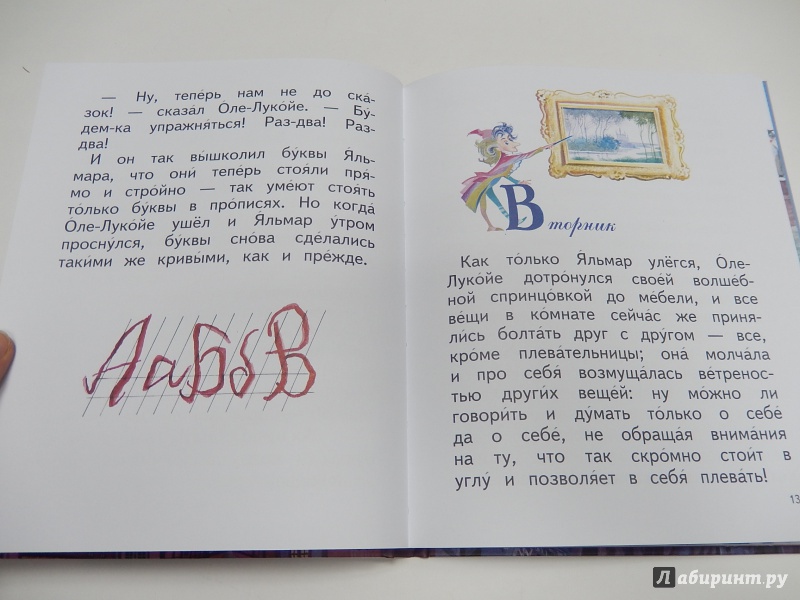 — Ну, тепе́рь нам не до ска́-
зок! — сказа́л О́ле-Луко́йе. — Бу́-
дем-ка упражня́ться! Раз-два! Раз-
два!
И он так вы́школил бу́квы Я́ль-
мара, что они́ тепе́рь стоя́ли пря́-
мо и стро́йно — так уме́ют стоя́ть
то́лько бу́квы в про́писях. Но когда́
О́ле-Луко́йе ушёл и Я́льмар у́тром
просну́лся, бу́квы сно́ва сде́лались
таки́ми же кривы́ми, как и пре́жде.
АаБбВ
Вторник
Как то́лько Я́льмар улёгся, О́ле-
Луко́йе дотро́нулся свое́й волше́б-
ной спринцо́вкой до ме́бели, и все
ве́щи в ко́мнате сейча́с же приня-
ли́сь болта́ть друг с дру́гом — все,
кро́ме плева́тельницы; она́ молча́ла
и про себя́ возмуща́лась ве́тренос-
тью други́х веще́й: ну мо́жно ли
говори́ть и ду́мать то́лько о себе́
да о себе́, не обраща́я внима́ния
на ту, что так скро́мно стои́т в
углу́ и позволя́ет в себя́ плева́ть!
13
Лабиринт.ру